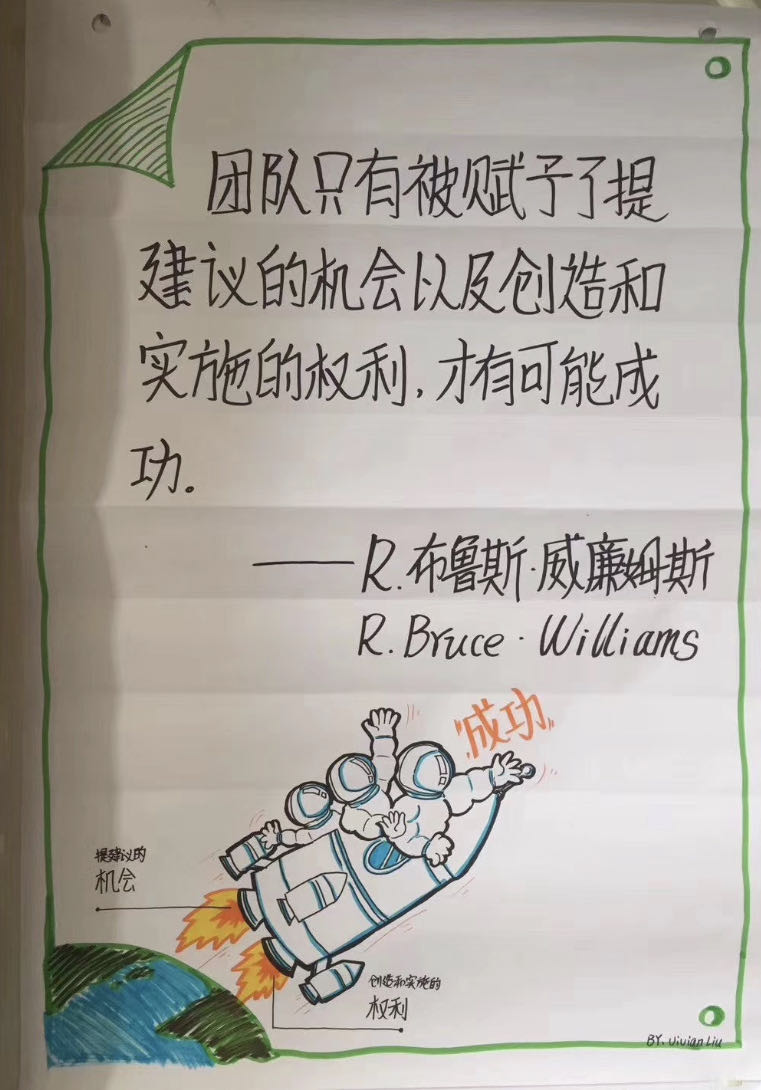 团队只有被赋予了提
建议的机会以及创造和
实施的权利,才有可能成
功.
——R.布鲁斯·威廉姆斯
R.Bruce·Williams
"成功"
提建议的
机会
创造和实施的
权利
BY.VivianLiu